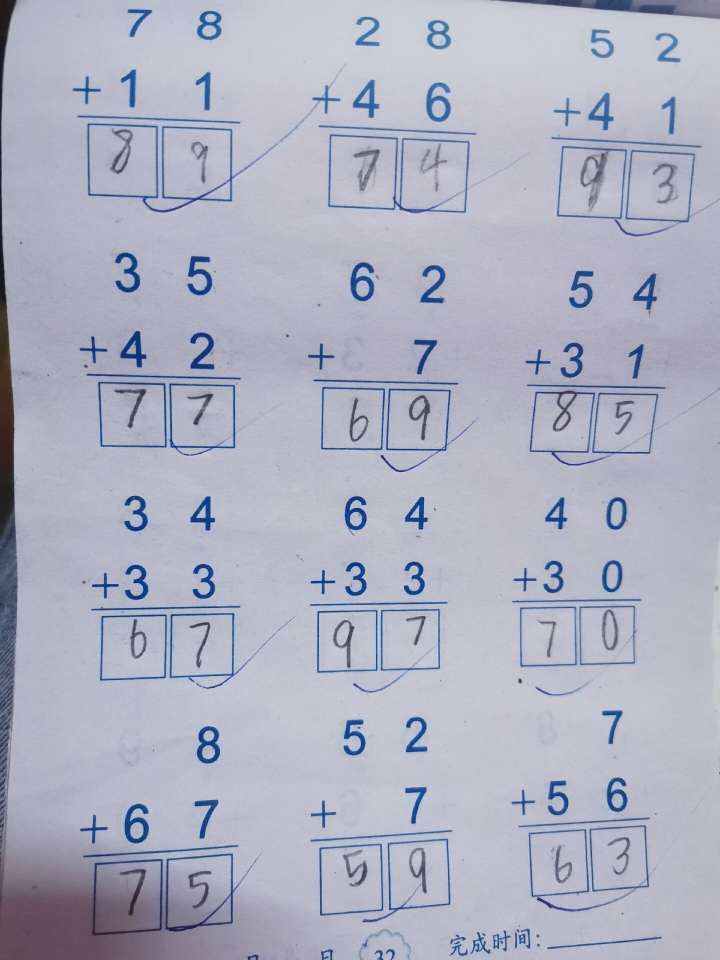 7 8 2 8 5 2
+1 1 +4 6 +4 1
8 9 7 4 9 3
3 5 6 2 5 4
+4 2 + 7 +3 1
7 7 6 9 8 5
3 4 6 4 4 0
+3 3 +3 3 +3 0
6 7 9 7 7 0
8 5 2 7
+6 7 + 7 +5 6
7 5 5 9 6 3
月 日 32 完成时间: